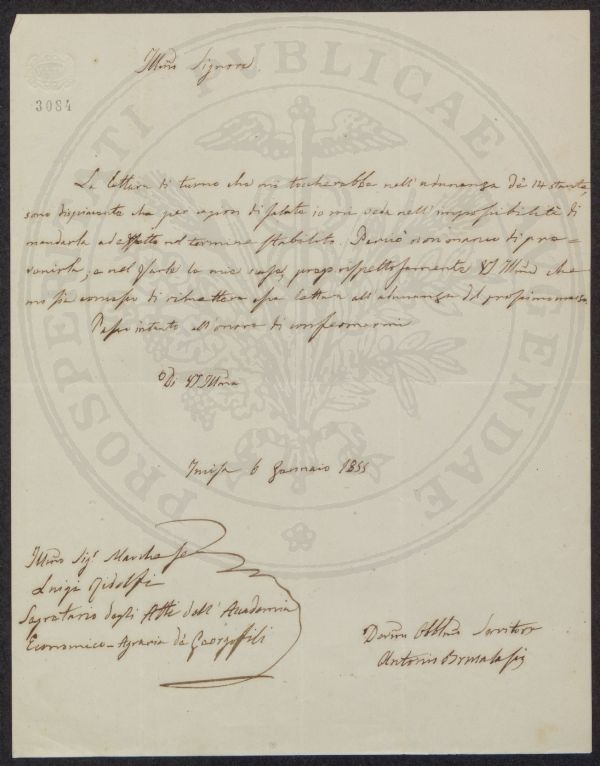 Illmo Signore
PROSPERITATI PUBLICAE AUGENDAE
3084
La lettura di turno che mi toccherebbe nell'adunanza de' 14 stante,
sono dispiacente che per ragioni di salute io mi veda nell'impossibilità di
mandarla ad effetto nel termine stabilito. Perciò non manco di pre=
venirla, e nel farle le mie scuse, prego rispettosamente VS Illma che
mi sia concesso di rimettere essa lettura all'adunanza del prossimo mese
Passo intanto all'onore di confermarmi
Di VS Illma
6 Gennaio 1855
Illmo Sigr Marchese
Luigi Ridolfi
Segretario degli Atti dell'Accademia
Economico-Agraria de' Georgofili
Devmo Obblmo Servitore
Antonio